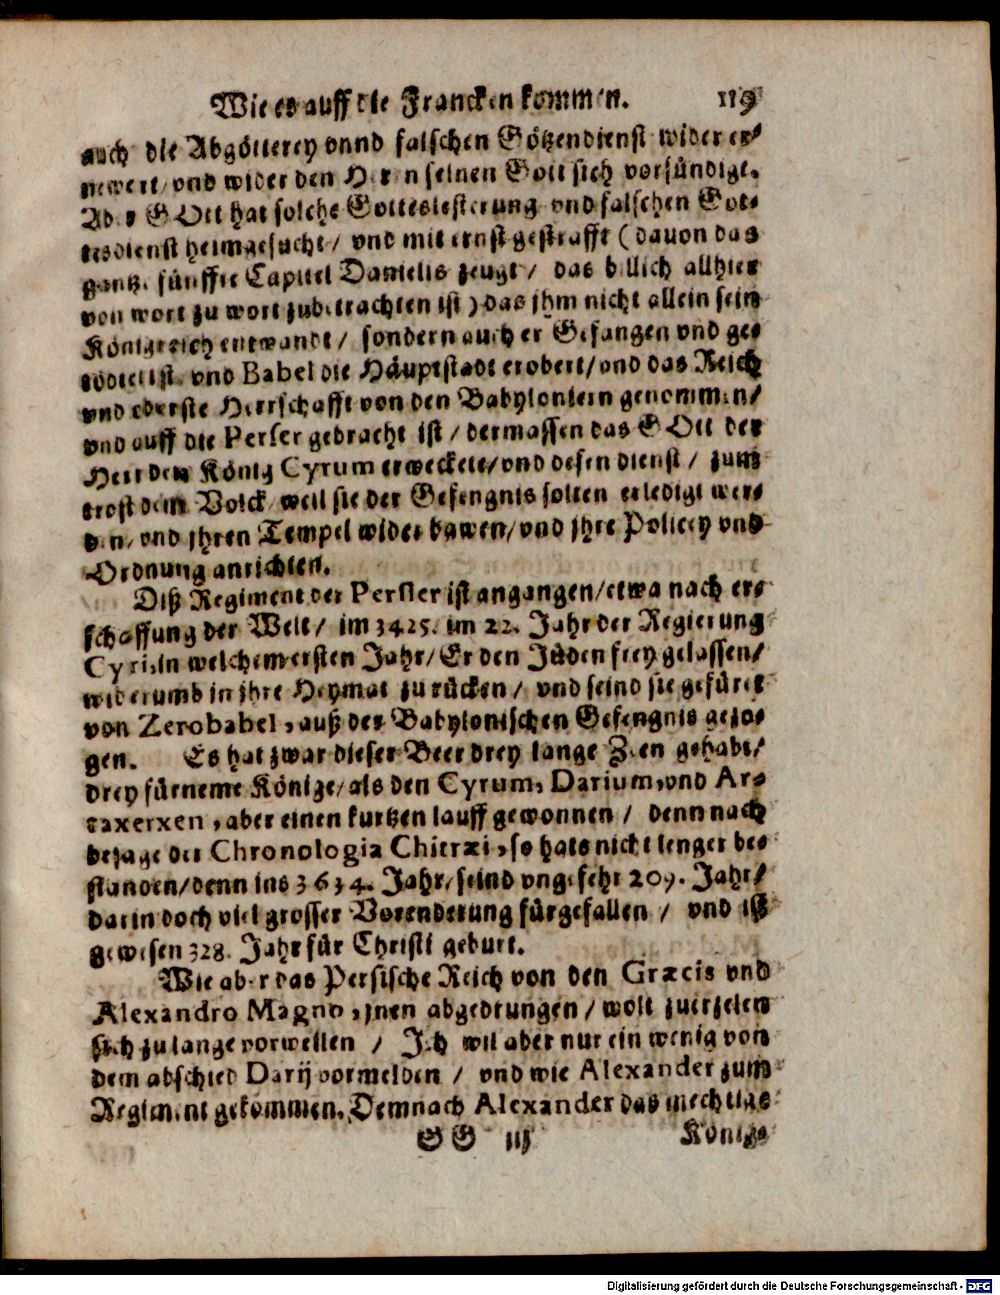 Wie es auff die Francken kommen. 119
auch die Abgötterey vnnd falschen Götzendienst wider er⸗
newert / vnd wider den Herrn seinen Gott sich vorsündigt.
Aber GOtt hat solche Gotteslesterung vnd falschen Got⸗
tesdienst heimgesucht / vnd mit ernst gestrafft ( dauon das
gantze fünffte Capittel Danielis zeugt / das billich allhier
von wort zu wort zubetrachten ist ) das jhm nicht allein sein
Königreich entwandt / sondern auch er Gefangen vnd ge⸗
tödtet ist, vnd Babel die Häuptstadt erobert / vnd das Reich
vnd oberste Herrschafft von den Babyloniern genommen /
vnd auff die Perser gebracht ist / dermassen das GOtt der
Herr den König Cyrum erweckete / vnd desen dienst / zum
trost dem Volck / weil sie der Gefengnis solten erledigt wer⸗
den / vnd jhren Tempel wider bawen / vnd jhre Policey vnd
Ordnung anrichten.
Diß Regiment der Persier ist angangen / etwa nach er⸗
schaffung der Welt / im 3425. im 22. Jahr der Regierung
Cyri, in welchem ersten Jahr / Er den Jüden frey gelassen /
widerumb in jhre Heymat zu rücken / vnd seind sie gefüret
von Zerobabel, auß der Babylonischen Gefengnis gezo⸗
gen. Es hat zwar dieser Beer drey lange Zeen gehabt /
drey fürneme Könige / als den Cyrum, Darium, vnd Ar⸗
taxerxen, aber einen kurtzen lauff gewonnen / denn nach
besage der Chronologia Chitræi, so hats nicht lenger be⸗
standen / denn ins 3634. Jahr / seind vngefehr 209. Jahr /
darin doch viel grosser Vorenderung fürgefallen / vnd ist
gewesen 328. Jahr für Christi geburt.
Wie aber das Persische Reich von den Græcis vnd
Alexandro Magno, jnen abgedrungen / wolt zuerzelen
sich zu lange vorweilen / Jch wil aber nur ein wenig von
dem abschied Darij vormelden / vnd wie Alexander zum
Regiment gekommen. Demnach Alexander das mechtige
GG iij Königs
Digitalisierung gefördert durch die Deutsche Forschungsgemeinschaft - DFG